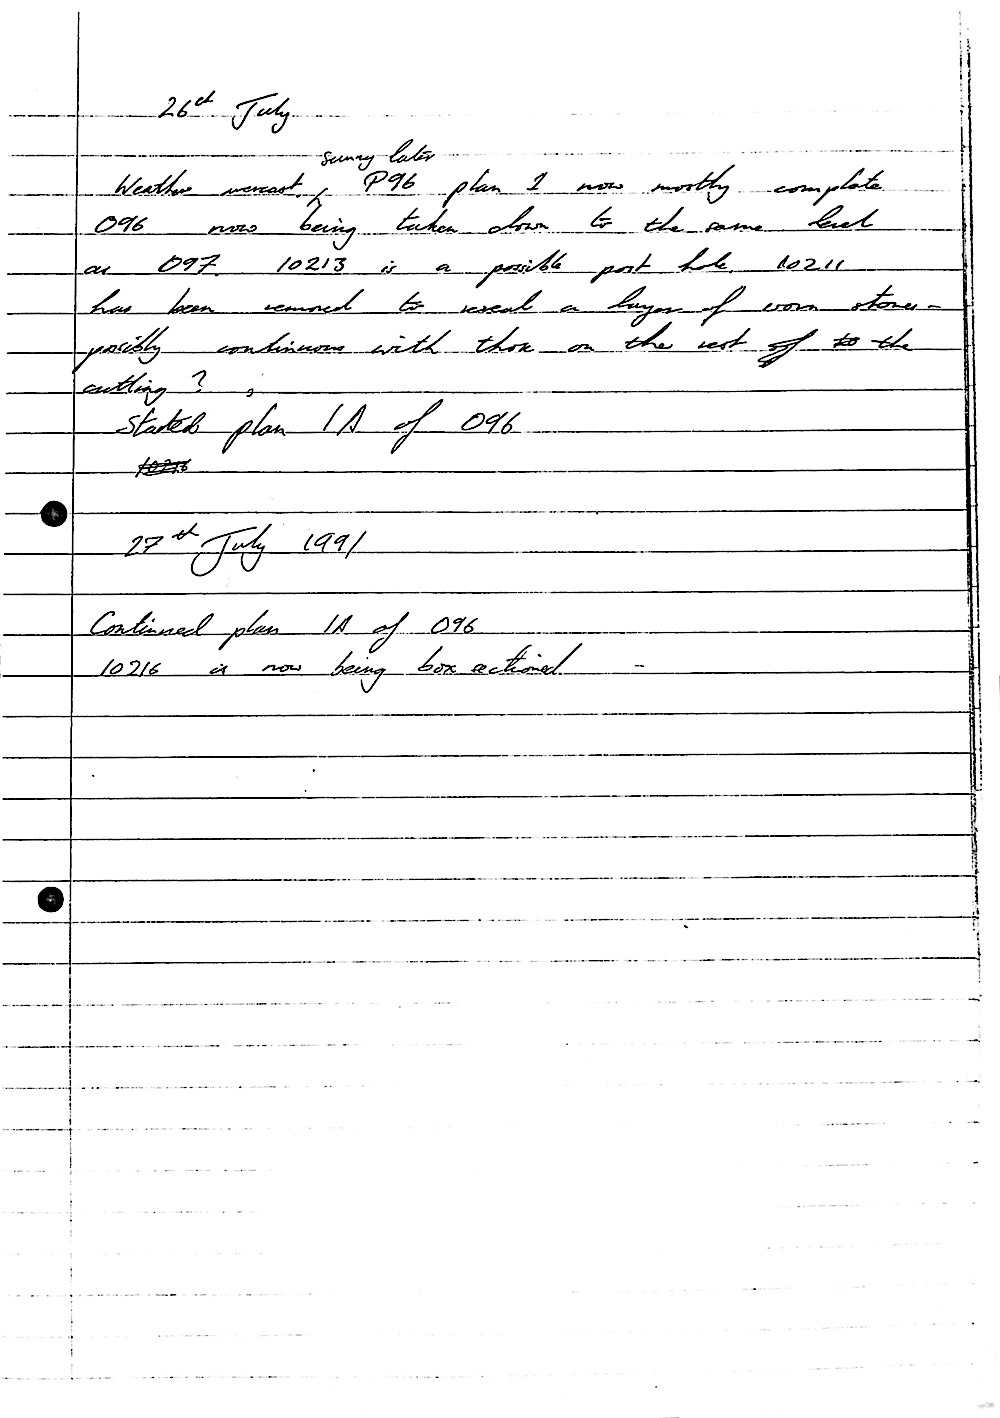 26th July
sunny later
Weather overcast, P96 plan 1 now mostly complete
O96 now being taken down to the same level
as O97. 10213 is a possible post hole. 10211
has been removed to reveal a layer of worn stones -
possibly continuous with those on the rest of to the
cutting?
Started plan 1A of O96
10216
27th July 1991
Continued plan 1A of O96
10216 is now being box sectioned -